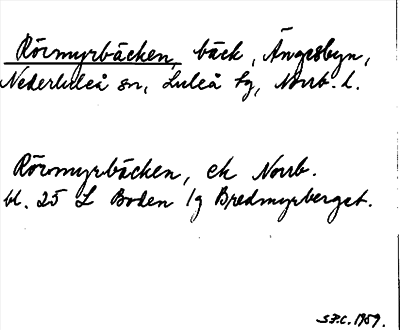 Rörmyrbäcken, bäck, Ängesbyn,
Nederluleå sn, Luleå tg, Norrb. l.
Rörmyrbäcken, ek Norrb.
bl. 25 L Boden 1g Bredmyrberget.
S.F.C. 1959.